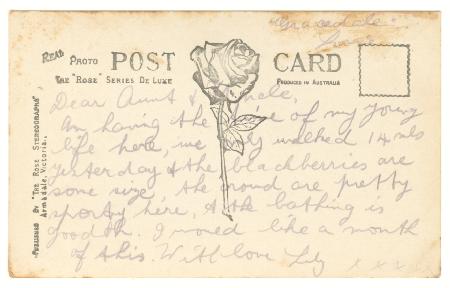 "Gracedale"
REAL PHOTO POST CARD
THE "ROSE" SERIES DE LUXE
PRODUCED IN AUSTRALIA
PUBLISHED BY "THE ROSE STEREOGRAPHS"
Armadale, Victoria.
Dear Aunt & Uncle,
Am having the time of my young
life here, we only walked 14 mls
yesterday & the blackberries are
some size, the crowd are pretty
sporty here, & the bathing is
good oh. I would like a month
of this. With love Lily
x x x x